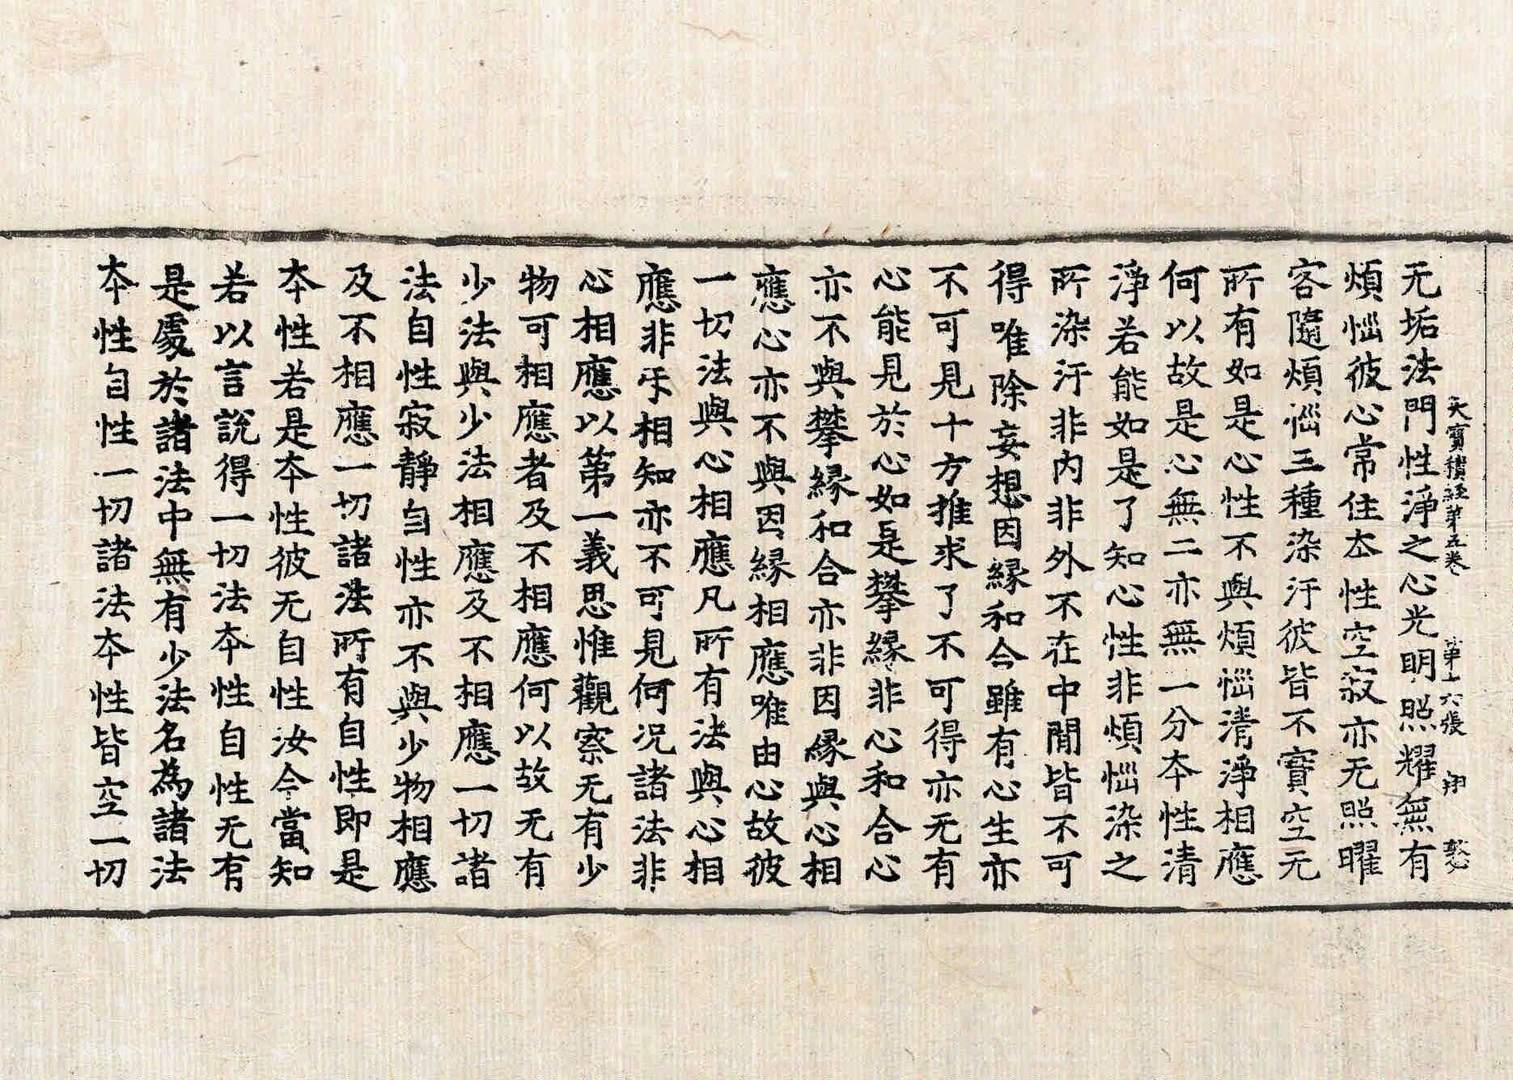 大寶積經第五卷 第十六張
无垢法門性淨之心光明照耀無有
煩惱彼心常住本性空寂亦无照曜
客隨煩惱三種染汙彼皆不實空无
所有如是心性不與煩惱清淨相應
何以故是心無二亦無一分本性清
淨若能如是了知心性非煩惱染之
所染汙非內非外不在中閒皆不可
得唯除妄想因緣和合雖有心生亦
不可見十方推求了不可得亦无有
心能見於心如是攀緣非心和合心
亦不與攀緣和合亦非因緣與心相
應心亦不與因緣相應唯由心故彼
一切法與心相應凡所有法與心相
應非乎相知亦不可見何况諸法非
心相應以第一義思惟觀察无有少
物可相應者及不相應何以故无有
少法與少法相應及不相應一切諸
法自性寂靜自性亦不與少物相應
及不相應一切諸法所有自性即是
本性若是本性彼无自性汝今當知
若以言說得一切法本性自性无有
是處於諸法中無有少法名為諸法
本性自性一切諸法本性皆空一切